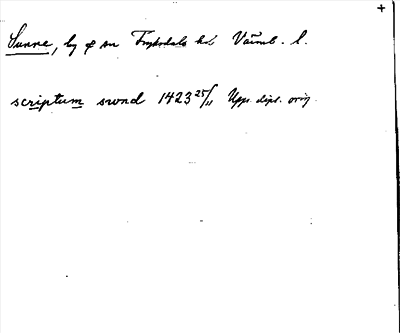 Sunne, by o sn Fryksdals hd Värml. l.
scriptum swnd 1423 25/11 Upps. dipl. orig.